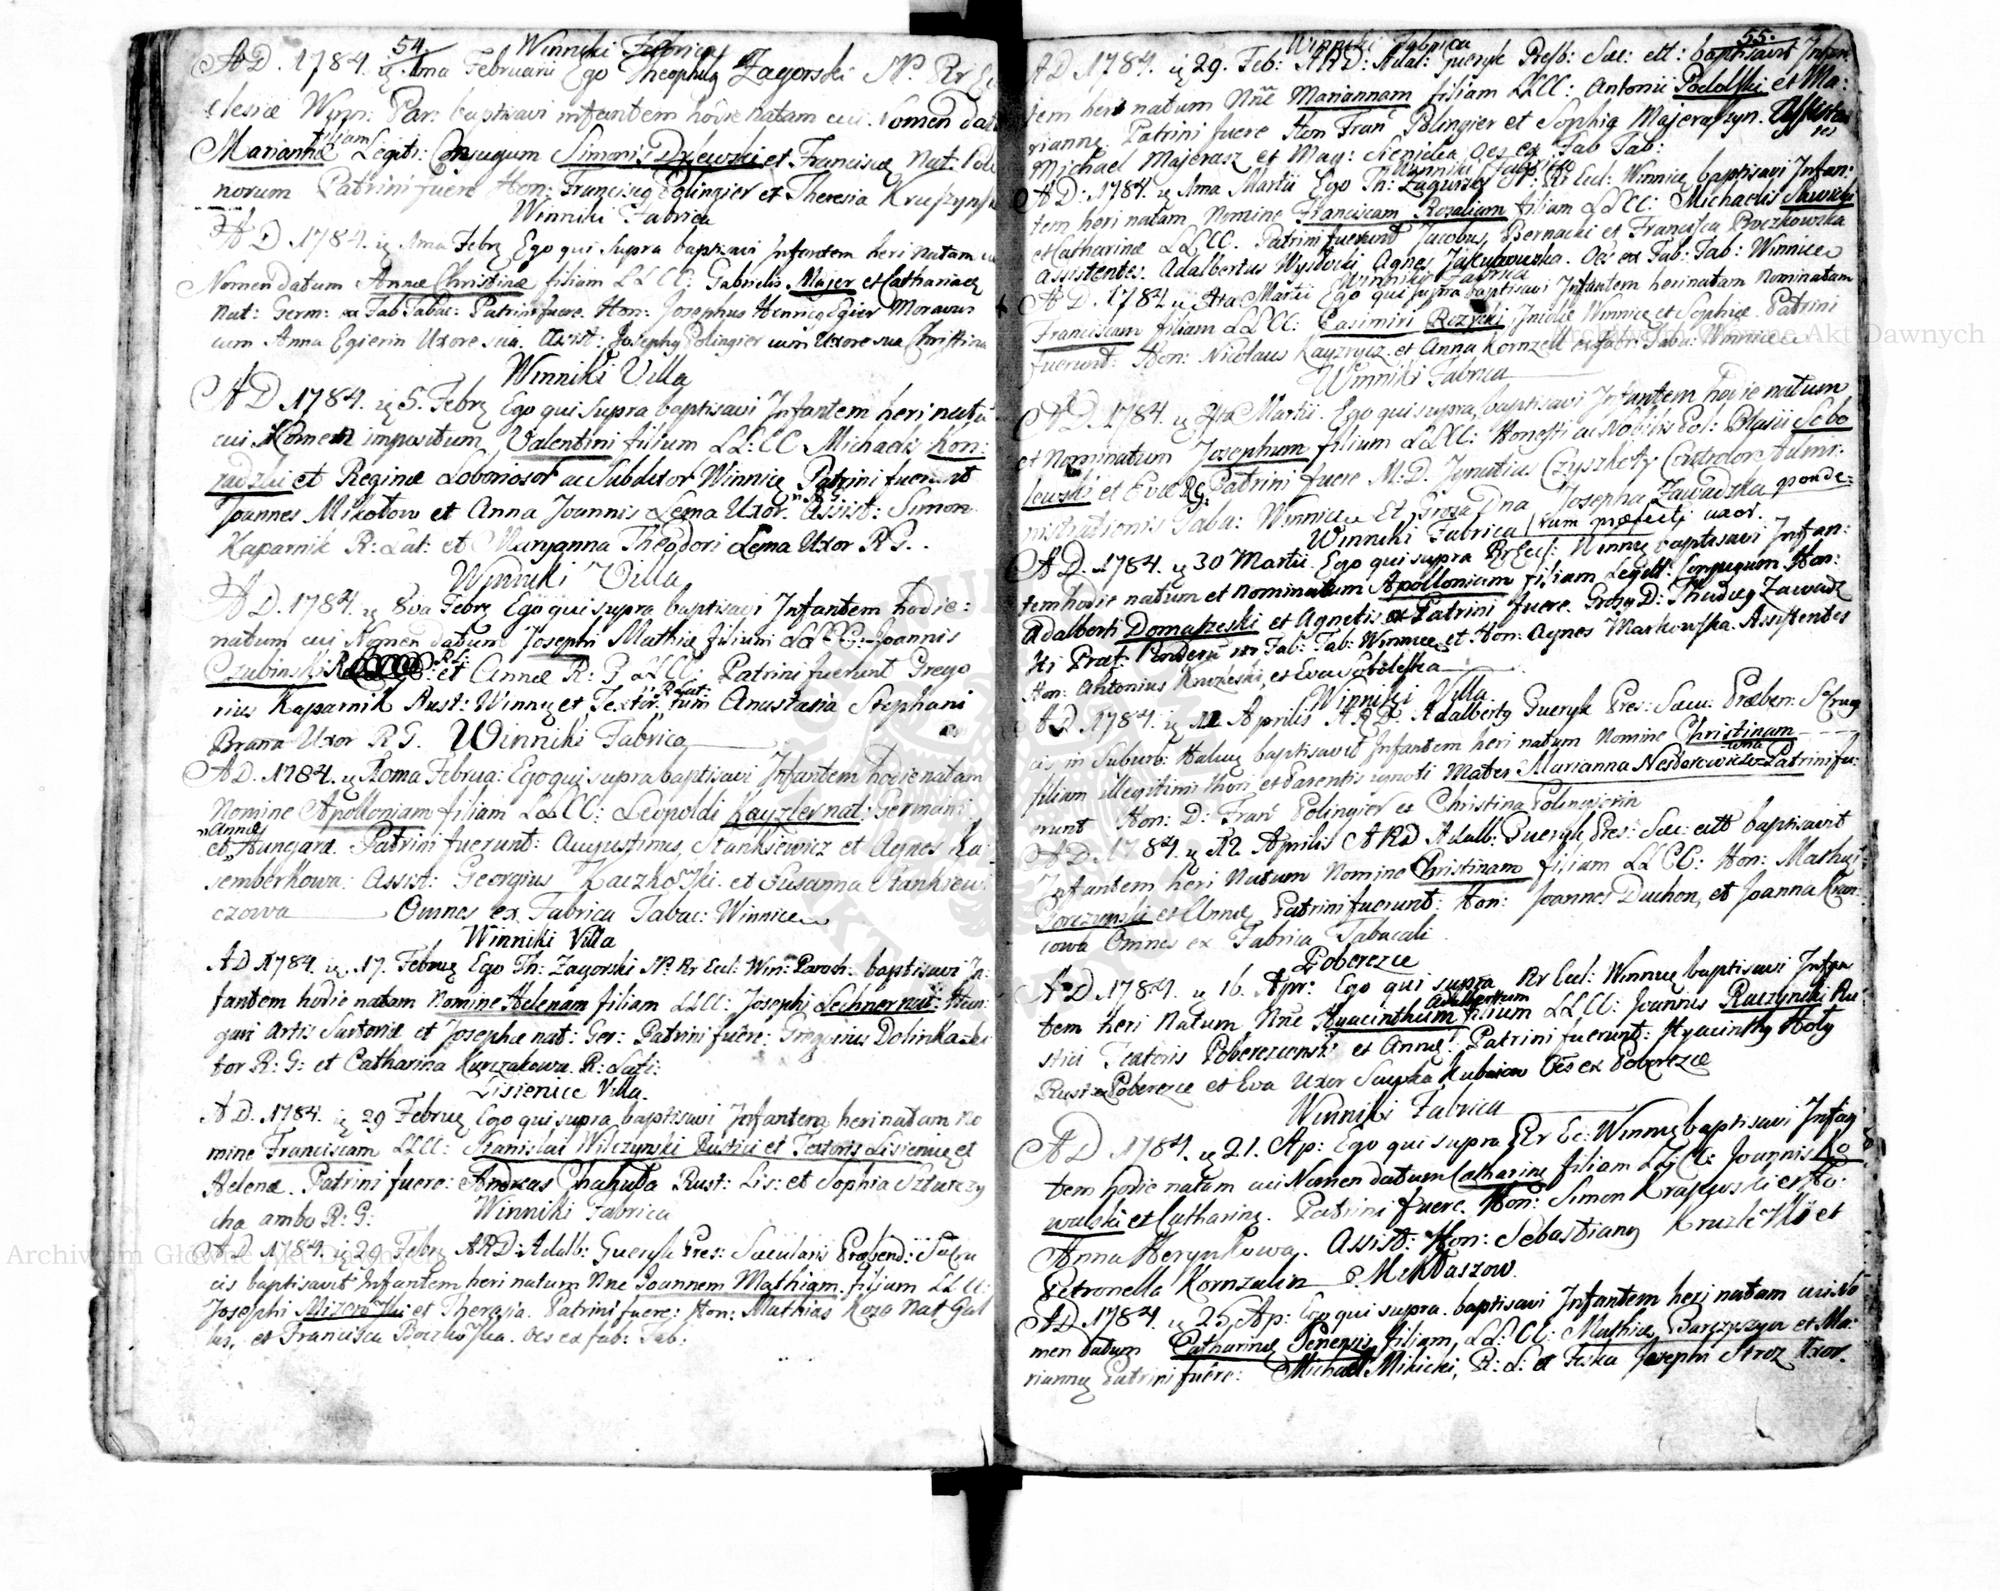 54.
Winniki Fabrica
A D. 1784. ię 1ma Februarii Ego Theophilg Zagorski NP. Rr Ec
clesiæ Winn: Par: baptisavi infantem hodie natam cui Nomen dat
Mariannæ filiam Legitt: Conjugum Simonis et Franciscæ Nat: Polo
norum Patrini fuere Hon: Franciscg Polingier et Theresia
Winniki Fabrica
A D 1784. ię 1ma Febrę Ego qui supra baptisavi Infantem heri natam
Nomen datum Annæ Christinæ filiam LLCC: Gabrielis Majer et Catharinæ
Nat: Germ: ex Fab Tabac: Patrini fuere. Hon: Josephus Egier Moravus
cum Anna Egierin Uxore sua. Assist: Josephg Polingier cum Uxore sua Christina
Winniki Villa
A D. 1784. ię 5. Febrę Ego qui supra baptisavi Infantem heri natu
cui Nomen impositum Valentini filium LL: CC Michaelis Kon:
radzki et Reginæ Laboriosor ac Subditor Winnicę Patrini fuerunt
Joannes Mikotow et Anna Joannis Lema Uxor. Assist: Simon
Kaparnik R: Lat: et Maryanna Theodori Lema Uxor R G.
Winniki Villa
A D. 1784. ię 8va Febrę Ego qui supra baptisavi Infantem hodie:
natum cui Nomen datum Josephi Mathiæ filium LLCC: Joannis
Czubinski et Annæ R: G LLCC: Patrini fuerunt Grego
rius Kaparnik Rust: Winnę et Anastasia Stephani
Brana Uxor R G. Winniki Fabrica
A D. 1784. ię Roma Februa: Ego qui supra baptisavi Infantem hodie natam
Nomine Apolloniam filiam LLCC: Leopoldi Kayzler nat: Germani
et Annæ Hungaræ. Patrini fuerunt: Augustinus Stankiewicz et Agnes Ka
semberkowa: Assist: Georgius Kaczkoski et Susanna Stankiewi
czowa Omnes ex Fabrica Tabac: Winnicen
Winniki Villa
A D 1784. ię 17. Februę Ego Th: Zagorski NP. Rr Eccl: Win: Paroch: baptisavi In
fantem hodie natam Nomine Helenam filiam LLCC: Josephi Lechner nat: Hun:
gari Artis Sartoriæ et Josephæ nat: Ger: Patrini fuêre: Gregorius Dolinka
tor R: G: et Catharina Kurczakowa. R: Lati:
Lisienice Villa.
A D. 1784. ię 29 Februę Ego qui supra baptisavi Infantem heri natam No
mine Franciscam LLCC: Stanislai Wilczynski Rustici et Textoris Lisienice et
Helenæ. Patrini fuere: Andreas Chahuta Rust: Lis: et Sophia Szturczy
cha ambo R: G: Winniki Fabrica
A D 1784. ię 29 Febrę ARD: Adalb: Gueryk Pres: Sæcularis Præbend: S Cru
cis baptisavit Infantem heri natum Nne Joannem Mathiam filium LLCC:
Josephi et Theresia. Patrini fuere: Hon: Mathias Koza Nat Gal
lus, et Francisca Oes ex fab: Tab:
55.
Winniki Fabrica
A D 1784. ię 29. Feb: ARD: Adal: Gueryk Presb: Sæc: ett: baptisavit Infan
tem heri natum Nne Mariannam filiam LLCC: Antonii Podolski et Ma:
riannę. Patrini fuere Hon Franc Polingier et Sophia Majeraszyn. Assisten
tes Michael Majerasz et Mag: Oes ex Fab Tab:
Winniki Fabrica
A D: 1784. ię 1ma Martii Ego Th: Zagorski NP. Rr Eccl: Winnicę baptisavi Infan:
tem heri natam Nomine Franciscam Rosaliam filiam LLCC: Michaelis
et Catharinæ LLCC. Patrini fuerunt Jacobus Bernacki et Francisca Boczkowska
Assistentes. Adalbertus Wysocki Agnes Jakubowska. Oes ex Fab: Tab: Winnicen
Winniki Fabrica
A D. 1784. ię Martii Ego qui supra baptisavi Infantem heri natam Nominatam
Franciscam filiam LLCC: Casimiri Rozycki Incolæ Winnice et Sophiæ. Patrini
fuerunt. Hon: Nicolaus et Anna Kornzell ex fabr: Taba: Winnicen
Winniki Fabrica
A D. 1784. ię Martii. Ego qui supra baptisavi Infantem hodie natum
et Nominatum Josephum filium LLCC: Honesti ac Nobilis Pol: Blasii Sobo
lewski et Evæ RG: Patrini fuere M: D. Ignatius Czyszkoty Controlor Admi:
nistrationis Taba: Winnicen Et Grosa Dna Josepha Zawadzka ponde:
rum præfecti uxor.
Winniki Fabrica
A D. 1784. ię 30 Martii. Ego qui supra Rr Eccl: Winnię baptisavi Infan:
tem hodie natum et nominatum Apolloniam filiam Legitt: Conjugum Hon:
Adalberti Domaszeski et Agnetis Patrini fuere. Grosg D: Thadeg Zawadz
ki Præf: Ponderu ex Fab: Tab: Winnicæ et Hon: Agnes Markowska. Assistentes
Hon: Antonius Kruzeski, et Eva Sobileska
Winniki Villa
A D 1784. ię 11 Aprilis ARD. Adalbertg Gueryk Pres: Sæcu: Præben: S Cruc
cis in Suburb: Halicę baptisavit Infantem heri natum Nomine Christinam
filiam illegitimi thori et Parentis ignoti Mater Marianna Nesterowiczowna Patrini fu:
erunt Hon: D: Franc Polingier et Christina Polingierin
A D 1784 ię 12. Aprilis ARD Adalb: Gueryk Pres: Sæc: ett baptisavit
Infantem heri Natum Nomine Christinam filiam LLCC: Hon: Mathyi
Gorczynski et Annæ Patrini fuerunt: Hon: Joannes Duchon, et Joanna Kran:
iowa Omnes ex Fabrica Tabacali
Poberezce
A D 1784. ię 16. Apr: Ego qui supra Rr Eccl: Winnię baptisavi Infan
tem heri Natum Nne Hyacinthum Adalbertum filium LLCC: Joannis Raczynski Ru
stici Textoris Poberezcensis et Annæ: Patrini fuerunt: Hyacinthg Hoty
Rust: ex Poberezce et Eva Uxor Kubaiow Oes ex Poberezce
Winniki Fabrica
A D 1784. ię 21. Ap: Ego qui supra Rr Ec: Winnię baptisavi Infan
tem hodie natam cui Nomen datum Catharinę filiam LLCC: Joannis Ko
walski et Catharinę. Patrini fuere. Hon: Simon Krajewski et Ho:
Anna Herynkowa. Assist: Hon: Sebastiang Kruzleski et
Petronella Kornzalin
Miklaszow.
A D 1784. ię 25 Ap: Ego qui supra. baptisavi Infantem heri natam cui No
men datum Catharinę Senensis filiam LL: CC: Mathiæ et Ma:
riannę Patrini fuêre: Michael Mikicki, R: L: et Feska Josephi Uxor.
Archiwum Główne Akt Dawnych
Archiwum Główne Akt Dawnych